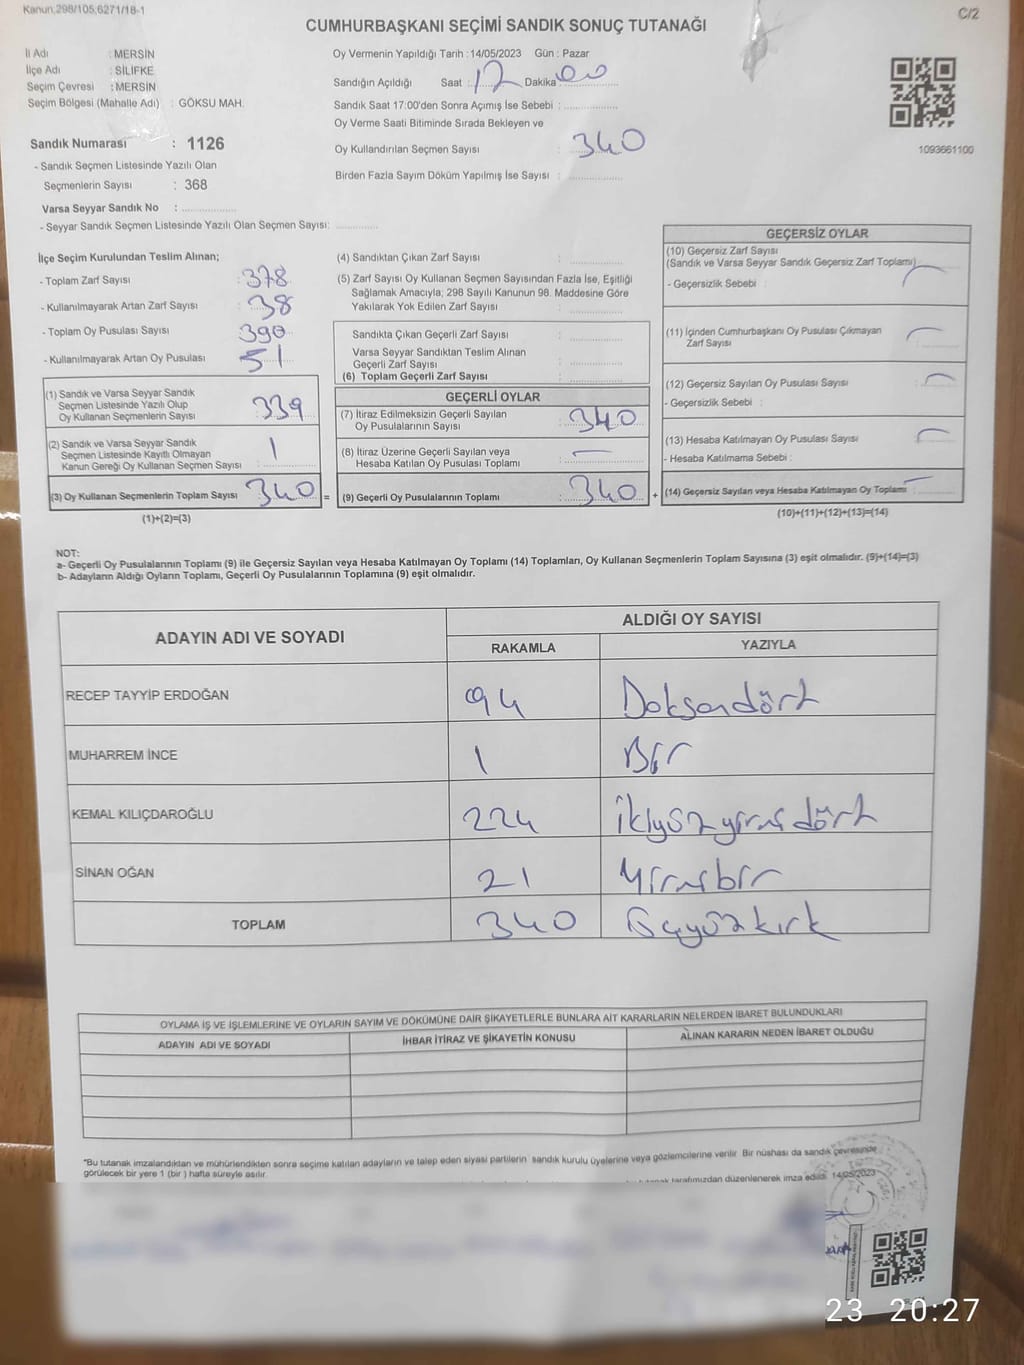 Kanun:298/105,6271/18-1
C/2
CUMHURBAŞKANI SEÇİMİ SANDIK SONUÇ TUTANAĞI
İl Adı : MERSİN
İlçe Adı : SİLİFKE
Seçim Çevresi : MERSİN
Seçim Bölgesi (Mahalle Adı) : GÖKSU MAH.
Sandık Numarası : 1126
- Sandık Seçmen Listesinde Yazılı Olan
Seçmenlerin Sayısı : 368
Varsa Seyyar Sandık No :
- Seyyar Sandık Seçmen Listesinde Yazılı Olan Seçmen Sayısı:
Oy Vermenin Yapıldığı Tarih : 14/05/2023 Gün : Pazar
Sandığın Açıldığı Saat : 17 Dakika 00
Sandık Saat 17:00'den Sonra Açımış İse Sebebi :
Oy Verme Saati Bitiminde Sırada Bekleyen ve
Oy Kullandırılan Seçmen Sayısı : 340
Birden Fazla Sayım Döküm Yapılmış İse Sayısı :
1093661100
İlçe Seçim Kurulundan Teslim Alınan;
- Toplam Zarf Sayısı : 378
- Kullanılmayarak Artan Zarf Sayısı : 38
- Toplam Oy Pusulası Sayısı : 390
- Kullanılmayarak Artan Oy Pusulası : 51
(1) Sandık ve Varsa Seyyar Sandık
Seçmen Listesinde Yazılı Olup
Oy Kullanan Seçmenlerin Sayısı : 339
(2) Sandık ve Varsa Seyyar Sandık
Seçmen Listesinde Kayıtlı Olmayan
Kanun Gereği Oy Kullanan Seçmen Sayısı : 1
(3) Oy Kullanan Seçmenlerin Toplam Sayısı : 340 =
(1)+(2)=(3)
(4) Sandıktan Çıkan Zarf Sayısı :
(5) Zarf Sayısı Oy Kullanan Seçmen Sayısından Fazla İse, Eşitliği
Sağlamak Amacıyla; 298 Sayılı Kanunun 98. Maddesine Göre
Yakılarak Yok Edilen Zarf Sayısı :
Sandıkta Çıkan Geçerli Zarf Sayısı :
Varsa Seyyar Sandıktan Teslim Alınan
Geçerli Zarf Sayısı :
(6) Toplam Geçerli Zarf Sayısı :
GEÇERLİ OYLAR
(7) İtiraz Edilmeksizin Geçerli Sayılan
Oy Pusulalarının Sayısı : 340
(8) İtiraz Üzerine Geçerli Sayılan veya
Hesaba Katılan Oy Pusulası Toplamı : —
(9) Geçerli Oy Pusulalarının Toplamı : 340 +
GEÇERSİZ OYLAR
(10) Geçersiz Zarf Sayısı
(Sandık ve Varsa Seyyar Sandık Geçersiz Zarf Toplamı) :
- Geçersizlik Sebebi : —
(11) İçinden Cumhurbaşkanı Oy Pusulası Çıkmayan
Zarf Sayısı : —
(12) Geçersiz Sayılan Oy Pusulası Sayısı : —
- Geçersizlik Sebebi :
(13) Hesaba Katılmayan Oy Pusulası Sayısı : —
- Hesaba Katılmama Sebebi :
(14) Geçersiz Sayılan veya Hesaba Katılmayan Oy Toplamı : —
(10)+(11)+(12)+(13)=(14)
NOT:
a- Geçerli Oy Pusulalarının Toplamı (9) ile Geçersiz Sayılan veya Hesaba Katılmayan Oy Toplamı (14) Toplamları, Oy Kullanan Seçmenlerin Toplam Sayısına (3) eşit olmalıdır. (9)+(14)=(3)
b- Adayların Aldığı Oyların Toplamı, Geçerli Oy Pusulalarının Toplamına (9) eşit olmalıdır.
ADAYIN ADI VE SOYADI
ALDIĞI OY SAYISI
RAKAMLA YAZIYLA
RECEP TAYYİP ERDOĞAN 94 Doksandört
MUHARREM İNCE 1 Bir
KEMAL KILIÇDAROĞLU 224 ikiyüzyirmidört
SİNAN OĞAN 21 Yirmibir
TOPLAM 340 Üçyüzkırk
OYLAMA İŞ VE İŞLEMLERİNE VE OYLARIN SAYIM VE DÖKÜMÜNE DAİR ŞİKAYETLERLE BUNLARA AİT KARARLARIN NELERDEN İBARET BULUNDUKLARI
ADAYIN ADI VE SOYADI İHBAR İTİRAZ VE ŞİKAYETİN KONUSU ALINAN KARARIN NEDEN İBARET OLDUĞU
"Bu tutanak imzalandıktan ve mühürlendikten sonra seçime katılan adayların ve talep eden siyasi partilerin sandık kurulu üyelerine veya gözlemcilerine verilir. Bir nüshası da sandık çevresinde
görülecek bir yere 1 (bir) hafta süreyle asılır.
tutanak tarafımızdan düzenlenerek imza edildi. 14/05/2023
23 20:27